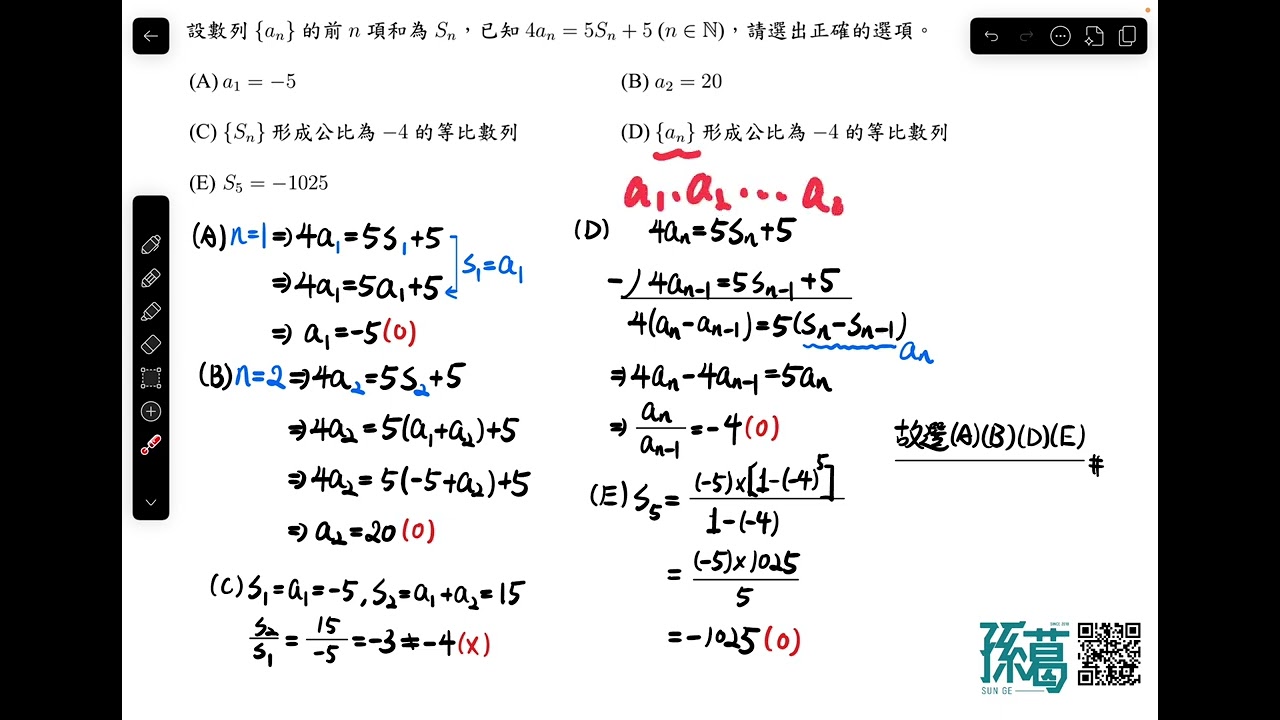 設數列 {aₙ} 的前 n 項和為 Sₙ，已知 4aₙ = 5Sₙ + 5 (n ∈ ℕ)，請選出正確的選項。
(A) a₁ = −5
(B) a₂ = 20
(C) {Sₙ} 形成公比為 −4 的等比數列
(D) {aₙ} 形成公比為 −4 的等比數列
(E) S₅ = −1025
a₁. a₂ ...
(A) n=1 ⇒ 4a₁ = 5S₁ + 5
S₁ = a₁
⇒ 4a₁ = 5a₁ + 5
⇒ a₁ = −5 (O)
(B) n=2 ⇒ 4a₂ = 5S₂ + 5
⇒ 4a₂ = 5(a₁+a₂) + 5
⇒ 4a₂ = 5(−5+a₂) + 5
⇒ a₂ = 20 (O)
(C) S₁ = a₁ = −5, S₂ = a₁ + a₂ = 15
S₂/S₁ = 15/−5 = −3 ≠ −4 (X)
(D) 4aₙ = 5Sₙ + 5
−) 4aₙ₋₁ = 5Sₙ₋₁ + 5
4(aₙ − aₙ₋₁) = 5(Sₙ − Sₙ₋₁)
aₙ
⇒ 4aₙ − 4aₙ₋₁ = 5aₙ
⇒ aₙ/aₙ₋₁ = −4 (O)
(E) S₅ = (−5)×[1−(−4)⁵] / 1−(−4)
= (−5)×1025 / 5
= −1025 (O)
故選(A)(B)(D)(E)
#
孫葛
SINCE 2018
SUN GE